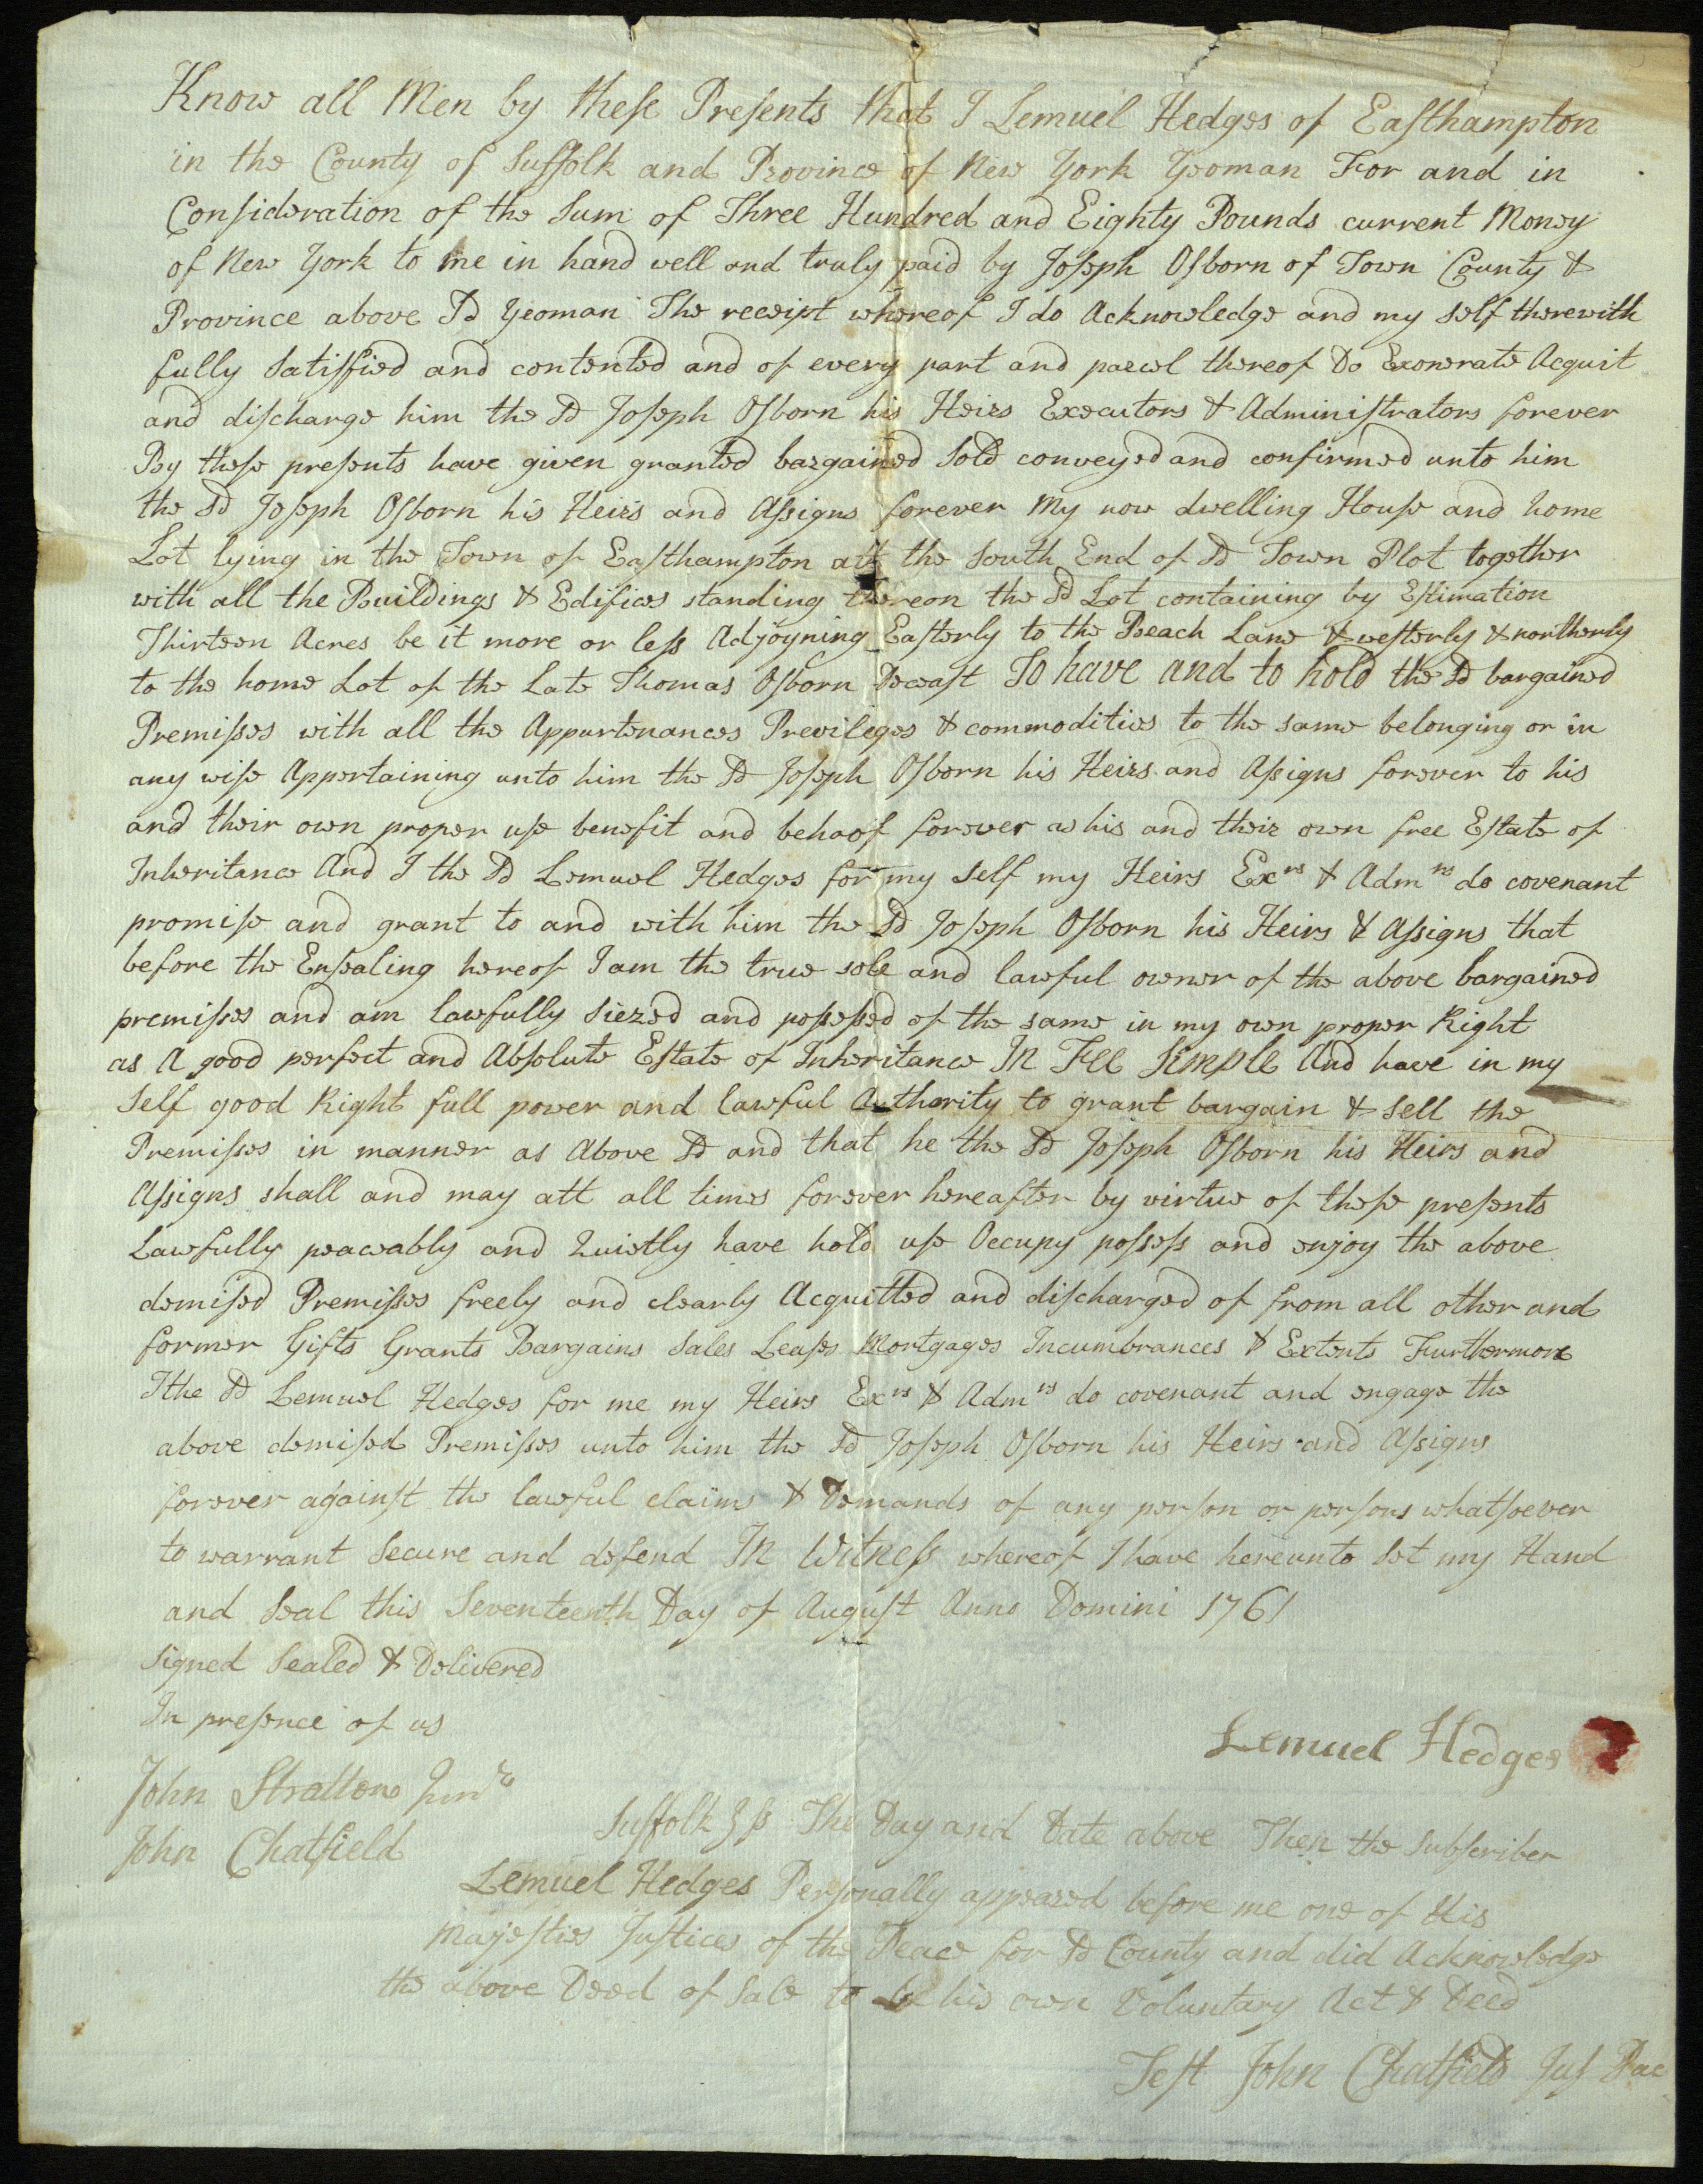 Know all Men by these Presents that I Lemuel Hedges of Easthampton
in the County of Suffolk and Province of New York Yeoman For and in
Consideration of the Sum of Three Hundred and Eighty Pounds current Money
of New York to me in hand well and truly paid by Joseph Osborn of Town County &
Province above Sd Yeoman The receipt whereof I do Acknowledge and my self therewith
fully Satisfied and contented and of every part and parcel thereof Do Exonerate Acquit
and discharge him the Sd Joseph Osborn his Heirs Executors & Administrators forever
By these presents have given granted bargained Sold conveyed and confirmed unto him
the Sd Joseph Osborn his Heirs and Assigns forever My now dwelling House and home
Lot lying in the Town of Easthampton att the South End of Sd Town Plot together
with all the Buildings & Edifices standing thereon the Sd Lot containing by Estimation
Thirteen Acres be it more or less Adjoyning Easterly to the Beach Lane & westerly & northerly
to the home Lot of the Late Thomas Osborn Deceast To have and to hold the Sd bargained
Premisses with all the Appurtenances Previleges & commodities to the same belonging or in
any wise Appertaining unto him the Sd Joseph Osborn his Heirs and Assigns forever to his
and their own proper use benefit and behoof forever as his and their own free Estate of
Inheritance And I the Sd Lemuel Hedges for my self my Heirs Exrs & Admrs do covenant
promise and grant to and with him the Sd Joseph Osborn his Heirs & Assigns that
before the Ensealing hereof I am the true sole and lawful owner of the above bargained
premisses and am lawfully Siezed and possessed of the same in my own proper Right
as A good perfect and Absolute Estate of Inheritance In Fee Simple And have in my
Self good Right full power and lawful Authority to grant bargain & Sell the
Premisses in manner as Above Sd and that he the Sd Joseph Osborn his Heirs and
Assigns shall and may att all times forever hereafter by virtue of these presents
Lawfully peaceably and Quietly have hold use Occupy possess and enjoy the above
demised Premisses freely and clearly Acquitted and discharged of from all other and
former Gifts Grants Bargains Sales Leases Mortgages Incumbrances & Extents Furthermore
I the Sd Lemuel Hedges for me my Heirs Exrs & Admrs do covenant and engage the
above demised Premisses unto him the Sd Joseph Osborn his Heirs and Assigns
forever against the lawful claims & Demands of any person or persons whatsoever
to warrant Secure and defend In Witness whereof I have hereunto Set my Hand
and Seal this Seventeenth Day of August Anno Domini 1761
Signed Sealed & Delivered
In presence of us
Lemuel Hedges
John Stratton Junr
John Chatfield
Suffolk } ss The Day and Date above Then the Subscriber
Lemuel Hedges Personally appeared before me one of His
Majesties Justices of the Peace for Sd County and did Acknowledge
the above Deed of Sale to be his own Voluntary Act & Deed
Test John Chatfield Jus Pac